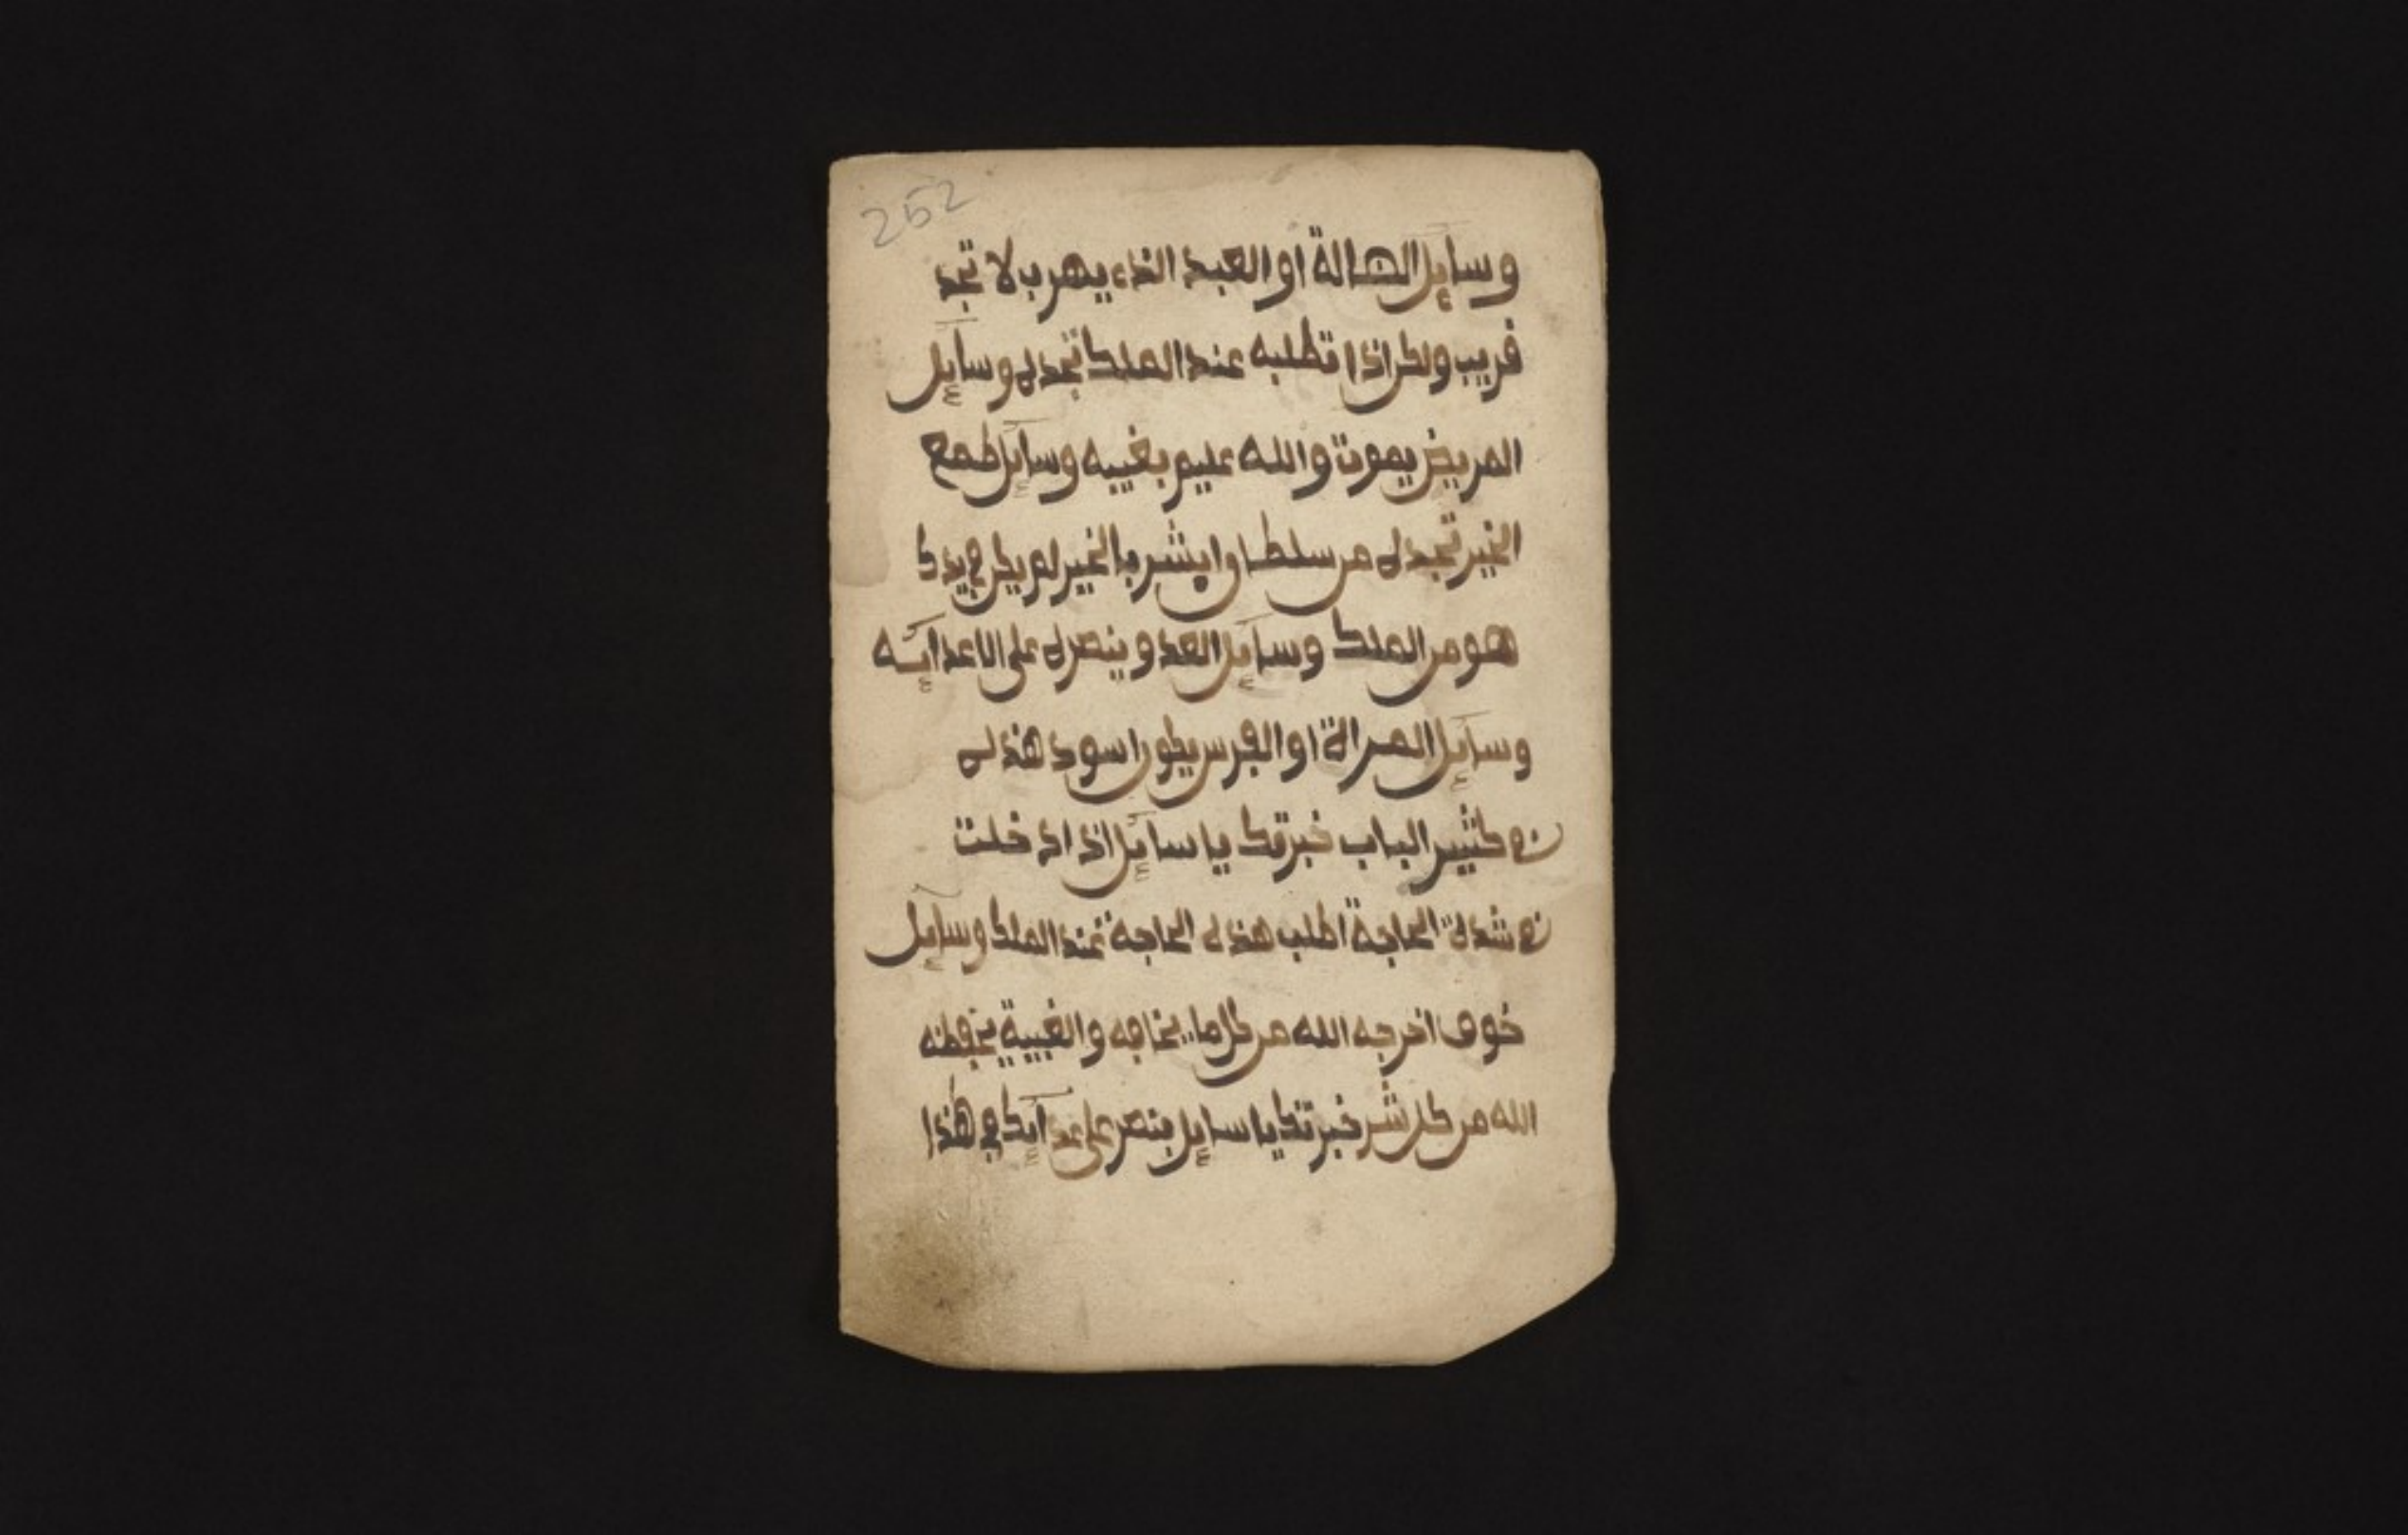 252
وسايل الضالة او العبد الذي يهرب لا تجد
قريب ولكن اذا تطلبه عند الملك تجده وسايل
المريض يموت والله عليم بغيبه وسايل طمع
الخير تجده من سلطان ابشر بالخير لم يكن في يدك
هو من الملك وسايل العدو ينصره على الاعدايه
وسايل المراة او الفرس يكون اسود هذه
في كثير الباب خبرتك يا سايل اذا دخلت
في شدة الحاجة اطلب هذه الحاجة عند الملك وسايل
خوف اخرجه الله من كل ما يخافه والغيبة يحفظه
الله من كل شر خبرتك يا سايل ينصر على عدايك في هذا